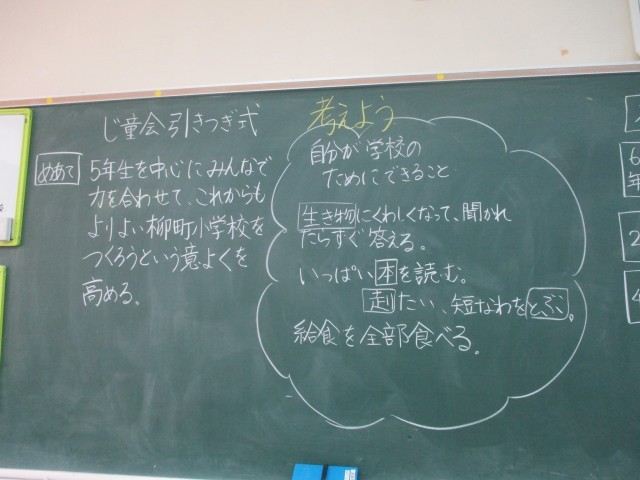 じ童会引きつぎ式
めあて
5年生を中心にみんなで
力を合わせて、これからも
よりよい柳町小学校を
つくろうという意よくを
高める。
考えよう
自分が学校の
ためにできること
生き物にくわしくなって、聞かれ
たらすぐ答える。
いっぱい本を読む。
走たい、短なわをとぶ。
給食を全部食べる。
6
年
2